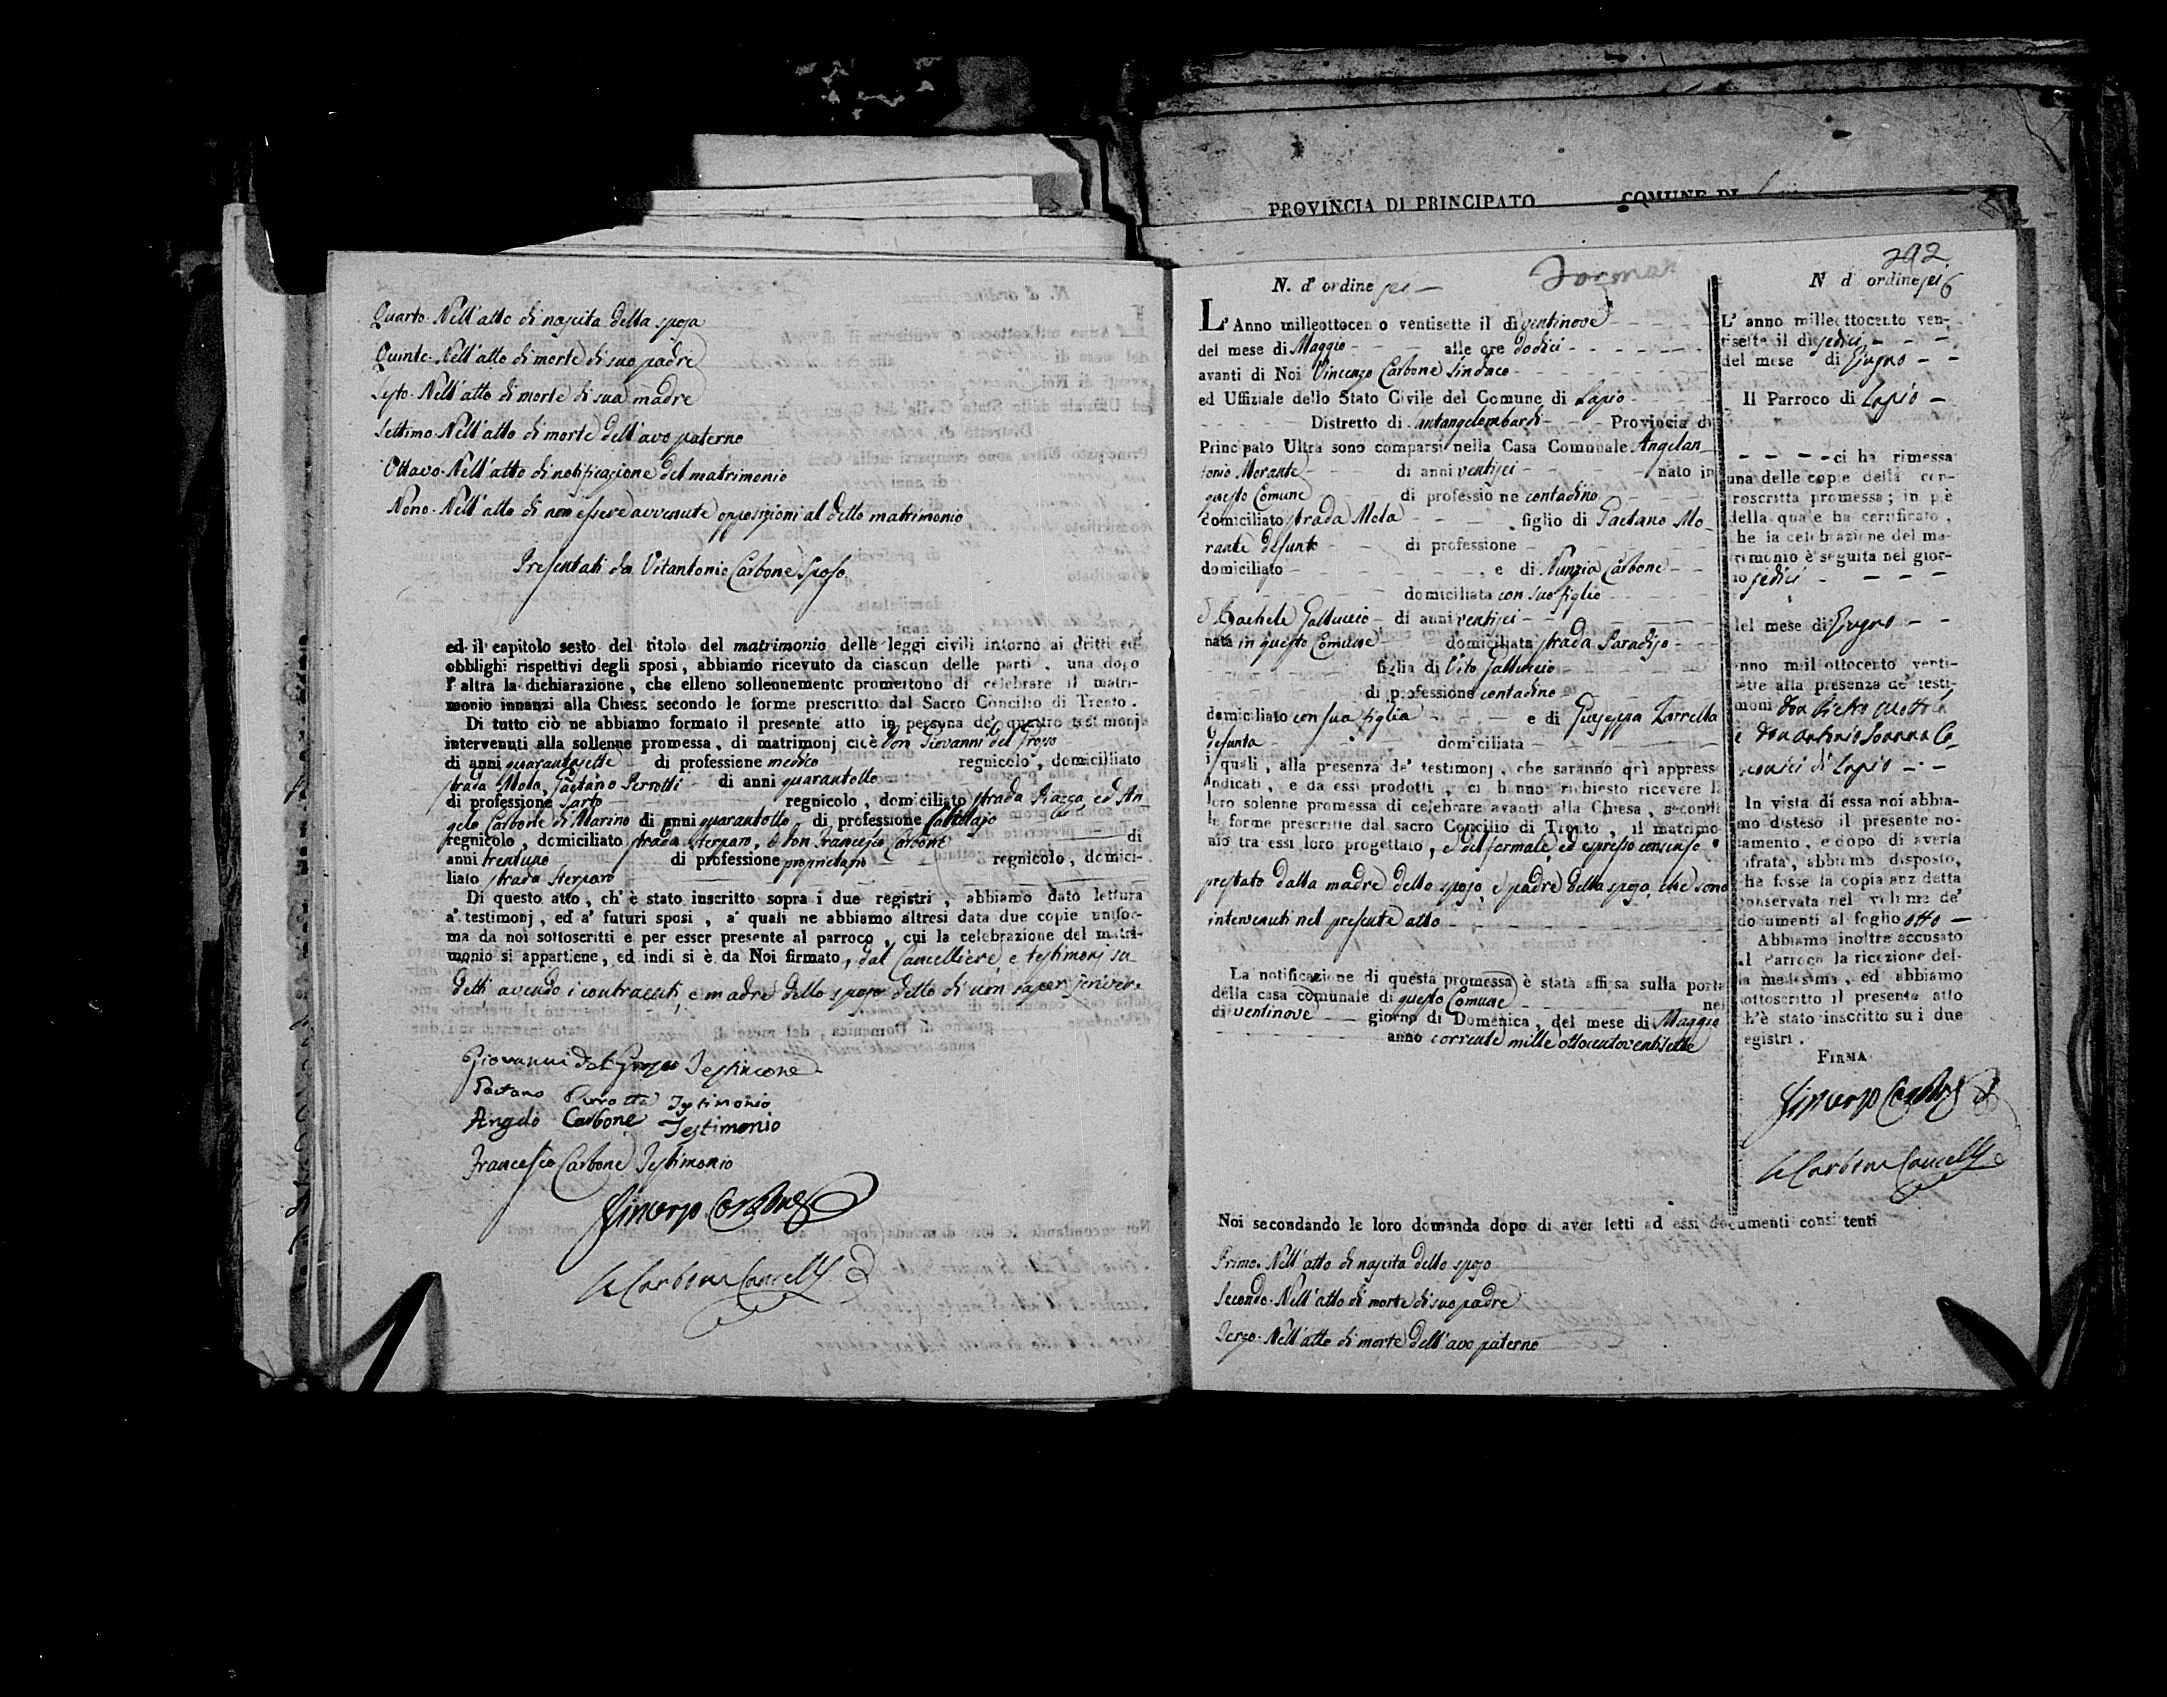 Quarto. Nell'atto di nascita della sposa
Quinto. Nell'atto di morte di suo padre
Sesto. Nell'atto di morte di sua madre
Settimo. Nell'atto di morte dell'avo paterno
Ottavo. Nell'atto di notificazione del matrimonio
Nono. Nell'atto di non essere avvenute opposizioni al detto matrimonio
Presentati da Vitantonio Carbone Sposo
ed il capitolo sesto del titolo del matrimonio delle leggi civili intorno ai dritti ed
obblighi rispettivi degli sposi, abbiamo ricevuto da ciascun delle parti, una dopo
l'altra la dichiarazione, che elleno sollennemente promettono di celebrare il matri-
monio innanzi alla Chiesa secondo le forme prescritto dal Sacro Concilio di Trento.
Di tutto ciò ne abbiamo formato il presente atto in persona de' quattro testimonj
intervenuti alla sollenne promessa, di matrimonj cicè Don Giovanni del Grosso
di anni quarantasette di professione medico regnicolo, domicilliato
strada Mola, Gaetano Perrotti di anni quarantotto
di professione Sarto regnicolo, domiciliato strada Piazza, ed An
gelo Carbone di Marino di anni quarantotto, di professione
regnicolo, domiciliato strada Sterparo, e Don Francesco Carbone di
anni trentuno di professione proprietario regnicolo, domici-
liato strada Sterparo
Di questo atto, ch'è stato inscritto sopra i due registri, abbiamo dato lettura
a' testimonj, ed a' futuri sposi, a' quali ne abbiamo altresi data due copie unifor-
ma da noi sottoscritti e per esser presente al parroco, cui la celebrazione del matri-
monio si appartiene, ed indi si è da Noi firmato, dal Cancelliere, e testimonj su
detti avendo i contraenti, e madre dello sposo detto di non saper scrivere
Giovanni del Grosso Testimone
Gaetano Perrotti Testimonio
Angelo Carbone Testimonio
Francesco Carbone Testimonio
Vincenzo Carbone
Carbone Cancell
PROVINCIA DI PRINCIPATO COMUNE DI
292
N. d'ordine
L'Anno milleottocen o ventisette il di ventinove
del mese di Maggio alle ore dodici
avanti di Noi Vincenzo Carbone Sindaco
ed Uffiziale dello Stato Civile del Comune di Lapio
Distretto di Santangelombardi Provincia di
Principato Ultra sono comparsi nella Casa Comunale Angelan
tonio Morante di anni ventisei nato in
questo Comune di professione contadino
domiciliato strada Mola figlio di Gaetano Mo-
rante defunto di professione
domiciliato, e di Nunzia Carbone
domiciliata con suo figlio
e Rachele Galluccio di anni ventisei
nata in questo Comune domiciliata strada Paradiso
figlia di Vito Galluccio
di professione contadino
domiciliato con sua figlia e di Giuseppa Zarrella
defunta domiciliata
i quali, alla presenza de' testimonj, che saranno qui appresso
indicati, e da essi prodotti, ci hanno richiesto ricevere la
loro solenne promessa di celebrare avanti alla Chiesa, secondo
le forme prescritte dal sacro Concilio di Trento, il matrimo-
nio tra essi loro progettato, e del formale, ed espresso consenso
prestato dalla madre dello sposo, e padre della sposa, che sono
intervenuti nel presente atto
La notificazione di questa promessa è stata affissa sulla porta
della casa comunale di questo Comune nel
di ventinove giorno di Domenica, del mese di Maggio
anno corrente mille ottocentoventisette
N d'ordine
L'anno milleottocento ven-
tisette il di sedici
del mese di Giugno
Il Parroco di Lapio
ci ha rimessa
una delle copie della con-
troscritta promessa; in piè
della quale ha certificato,
che la celebrazione del ma-
trimonio è seguita nel gior-
no sedici
del mese di Giugno
anno mill ottocento venti-
sette alla presenza de' testi-
moni Don Pietro
e Don Antonio
di Lapio
In vista di essa noi abbia-
mo disteso il presente no-
tamento, e dopo di averla
cifrata, abbiamo disposto,
che fosse la copia anzidetta
conservata nel volume de'
documenti al foglio otto
Abbiamo inoltre accusato
al Parroco la ricezione del-
la medesima, ed abbiamo
sottoscritto il presente atto
ch'è stato inscritto su i due
registri.
FIRMA
Vincenzo Carbone
Carbone Cancell
Noi secondando le loro domanda dopo di aver letti ad essi documenti consistenti
Primo. Nell'atto di nascita dello sposo
Secondo. Nell'atto di morte di suo padre
Terzo. Nell'atto di morte dell'avo paterno